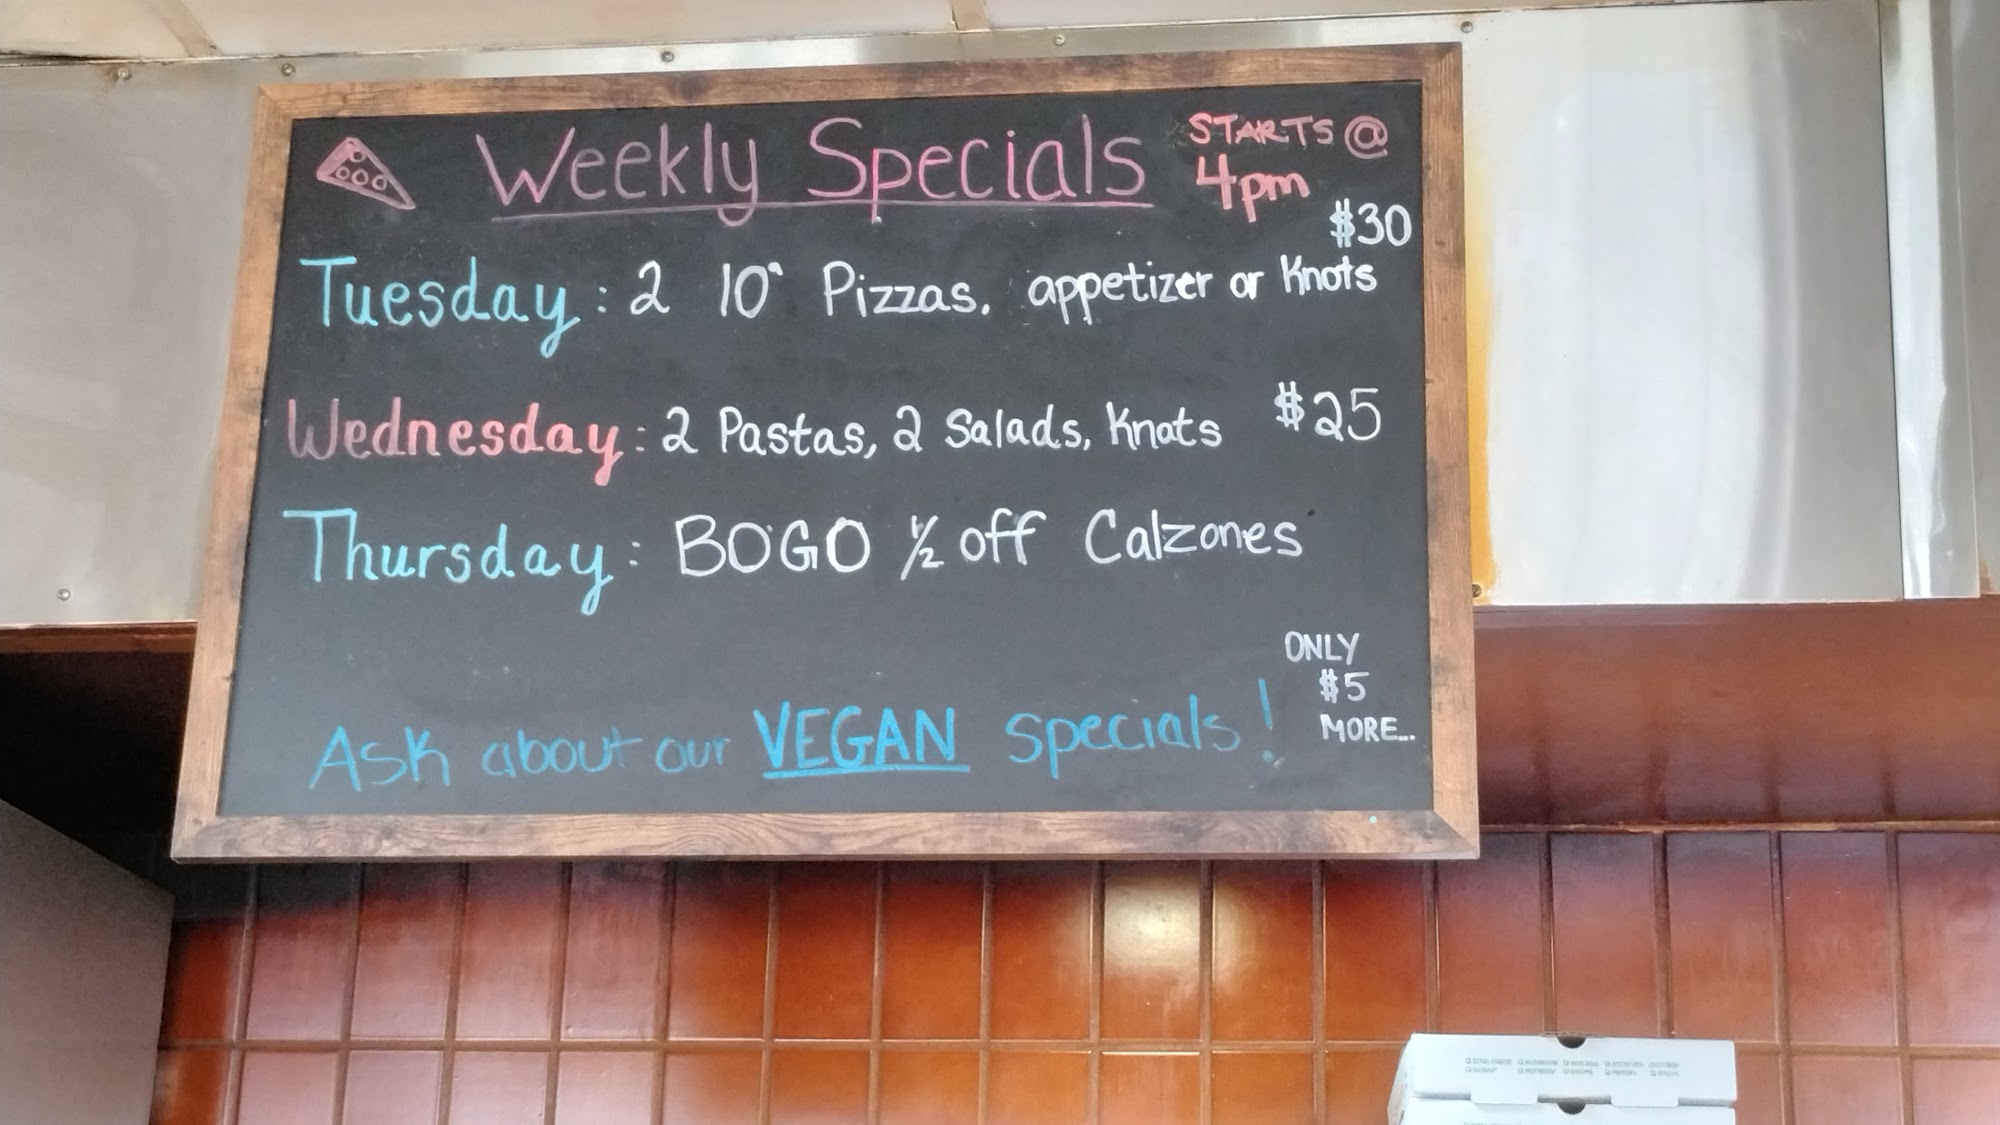 Weekly Specials
STARTS @
4pm
$30
Tuesday: 2 10" Pizzas. appetizer or Knots
Wednesday: 2 Pastas, 2 Salads, Knots $25
Thursday: BOGO 1/2 off Calzones
Ask about our VEGAN specials!
ONLY
$5
MORE...